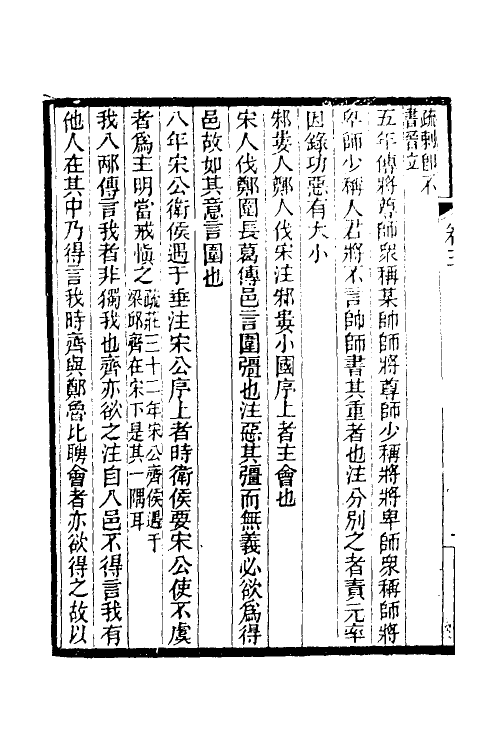 疏刺師不
書晉立
五年傳將尊師衆稱某帥師將尊師少稱將將卑師衆稱師將
卑師少稱人君將不言帥師書其重者也注分別之者責元率
因錄功惡有大小
邾婁人鄭人伐宋注邾婁小國序上者主會也
宋人伐鄭圍長葛傳邑言圍彊也注惡其彊而無義必欲爲得
邑故如其意言圍也
八年宋公衛侯遇于垂注宋公序上者時衛侯要宋公使不虞
者爲主明當戒愼之疏莊三十二年宋公齊侯遇于
梁邱齊在宋下是其一隅耳
我入邴傳言我者非獨我也齊亦欲之注自入邑不得言我有
他人在其中乃得言我時齊與鄭魯比聘會者亦欲得之故以